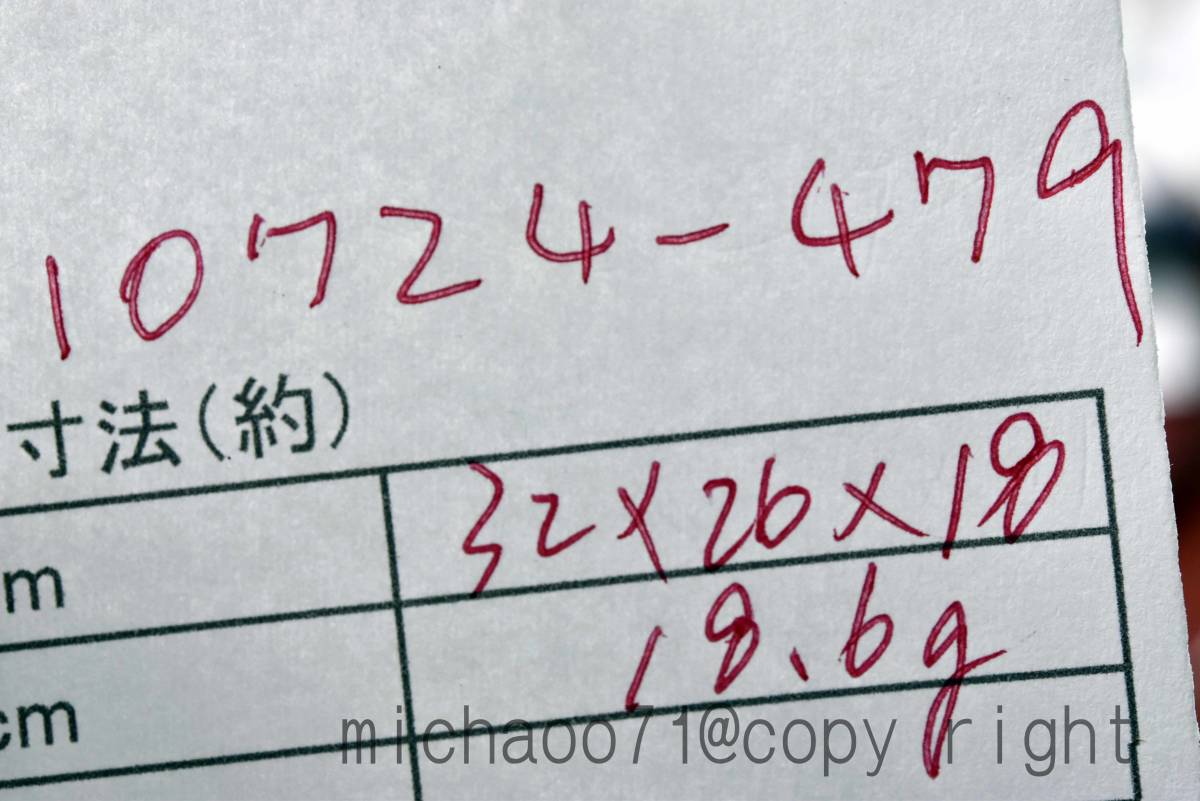 10724-479
寸法(約)
m 32×26×18
cm 18.6g
michaoo71@copy right